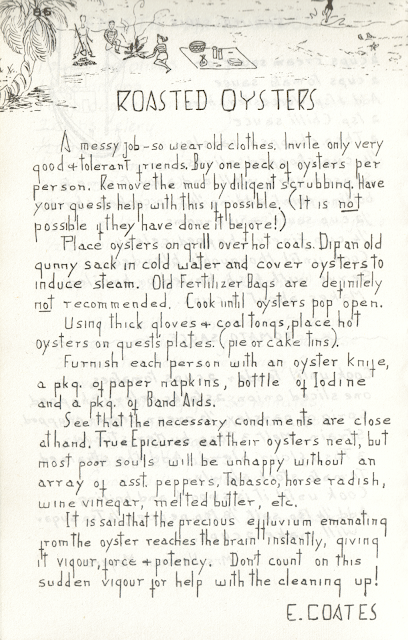 86
ROASTED OYSTERS
A messy job - so wear old clothes. Invite only very
good + tolerant friends. Buy one peck of oysters per
person. Remove the mud by diligent scrubbing. Have
your guests help with this if possible. (It is not
possible if they have done it before!)
Place oysters on grill over hot coals. Dip an old
gunny sack in cold water and cover oysters to
induce steam. Old Fertilizer Bags are definitely
not recommended. Cook until oysters pop open.
Using thick gloves + coal tongs, place hot
oysters on guests plates. (pie or cake tins).
Furnish each person with an oyster knife,
a pkg. of paper napkins, bottle of Iodine
and a pkg. of Band Aids.
See that the necessary condiments are close
at hand. True Epicures eat their oysters neat, but
most poor souls will be unhappy without an
array of asst. peppers, Tabasco, horse radish,
wine vinegar, melted butter, etc.
It is said that the precious effluvium emanating
from the oyster reaches the brain instantly, giving
it vigour, force + potency. Don't count on this
sudden vigour for help with the cleaning up!
E. COATES